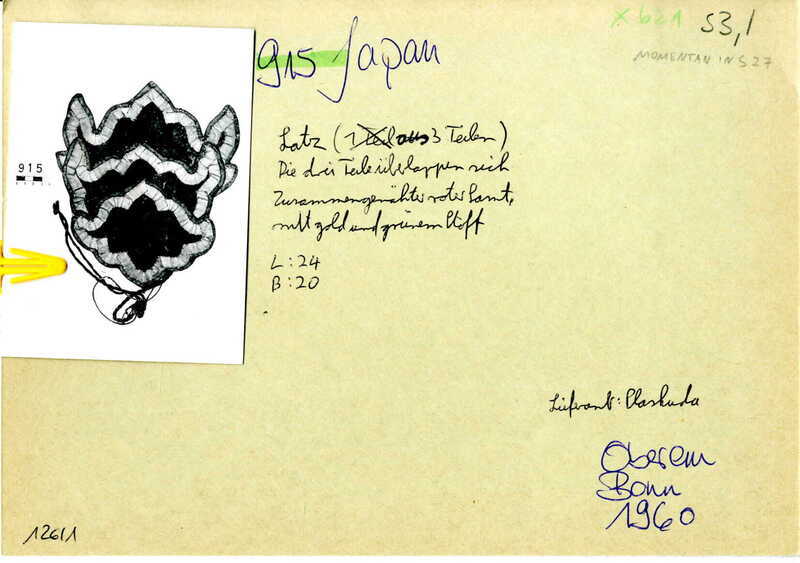 x 621
S3,1
MOMENTAN IN S 27
915 Japan
915
Latz (1 Teil aus 3 Teilen)
Die drei Teile überlappen sich
Zusammengenähter roter Samt,
mit gold und grünem Stoff
L : 24
B : 20
Lieferant: Plaskuda
Oberem
Bonn
1960
126/1